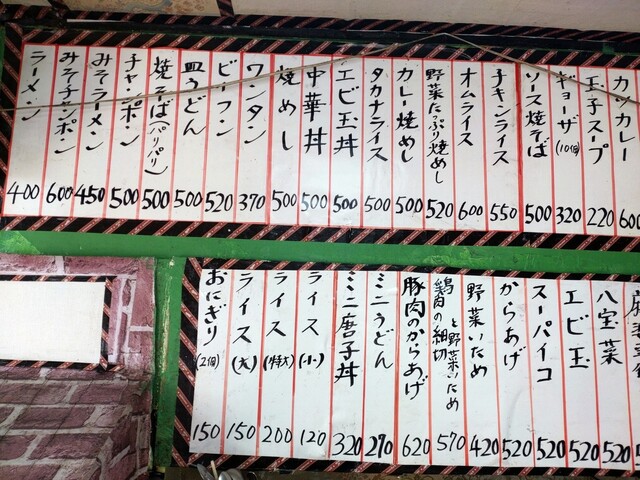 カツカレー 600
玉子スープ 220
ギョーザ(10個) 320
ソース焼そば 500
チキンライス 550
オムライス 600
野菜たっぷり焼めし 520
カレー焼めし 500
タカナライス 500
エビ玉丼 500
中華丼 500
焼めし 500
ワンタン 370
ビーフン 520
皿うどん 500
焼そば(パリパリ) 500
チャンポン 500
みそラーメン 450
みそチャンポン 600
ラーメン 400
八宝菜 520
エビ玉 520
スーパイコ 520
からあげ 520
野菜いため 420
鶏肉の細切
と野菜いため 570
豚肉のからあげ 620
ミニうどん 270
ミニ唐子丼 320
ライス(小) 120
ライス(特大) 200
ライス(大) 150
おにぎり(2個) 150